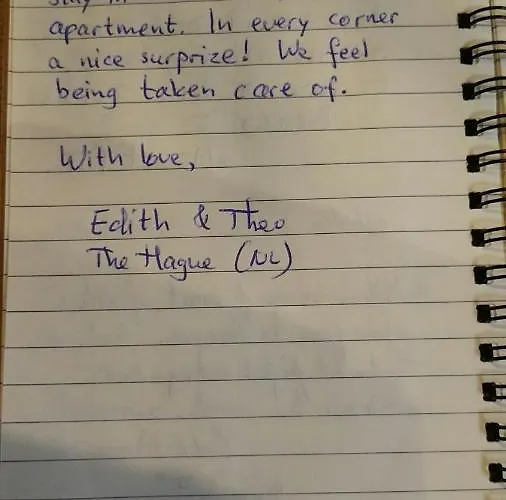 apartment. In every corner
a nice surprize! We feel
being taken care of.
With love,
Edith & Theo
The Hague (NL)